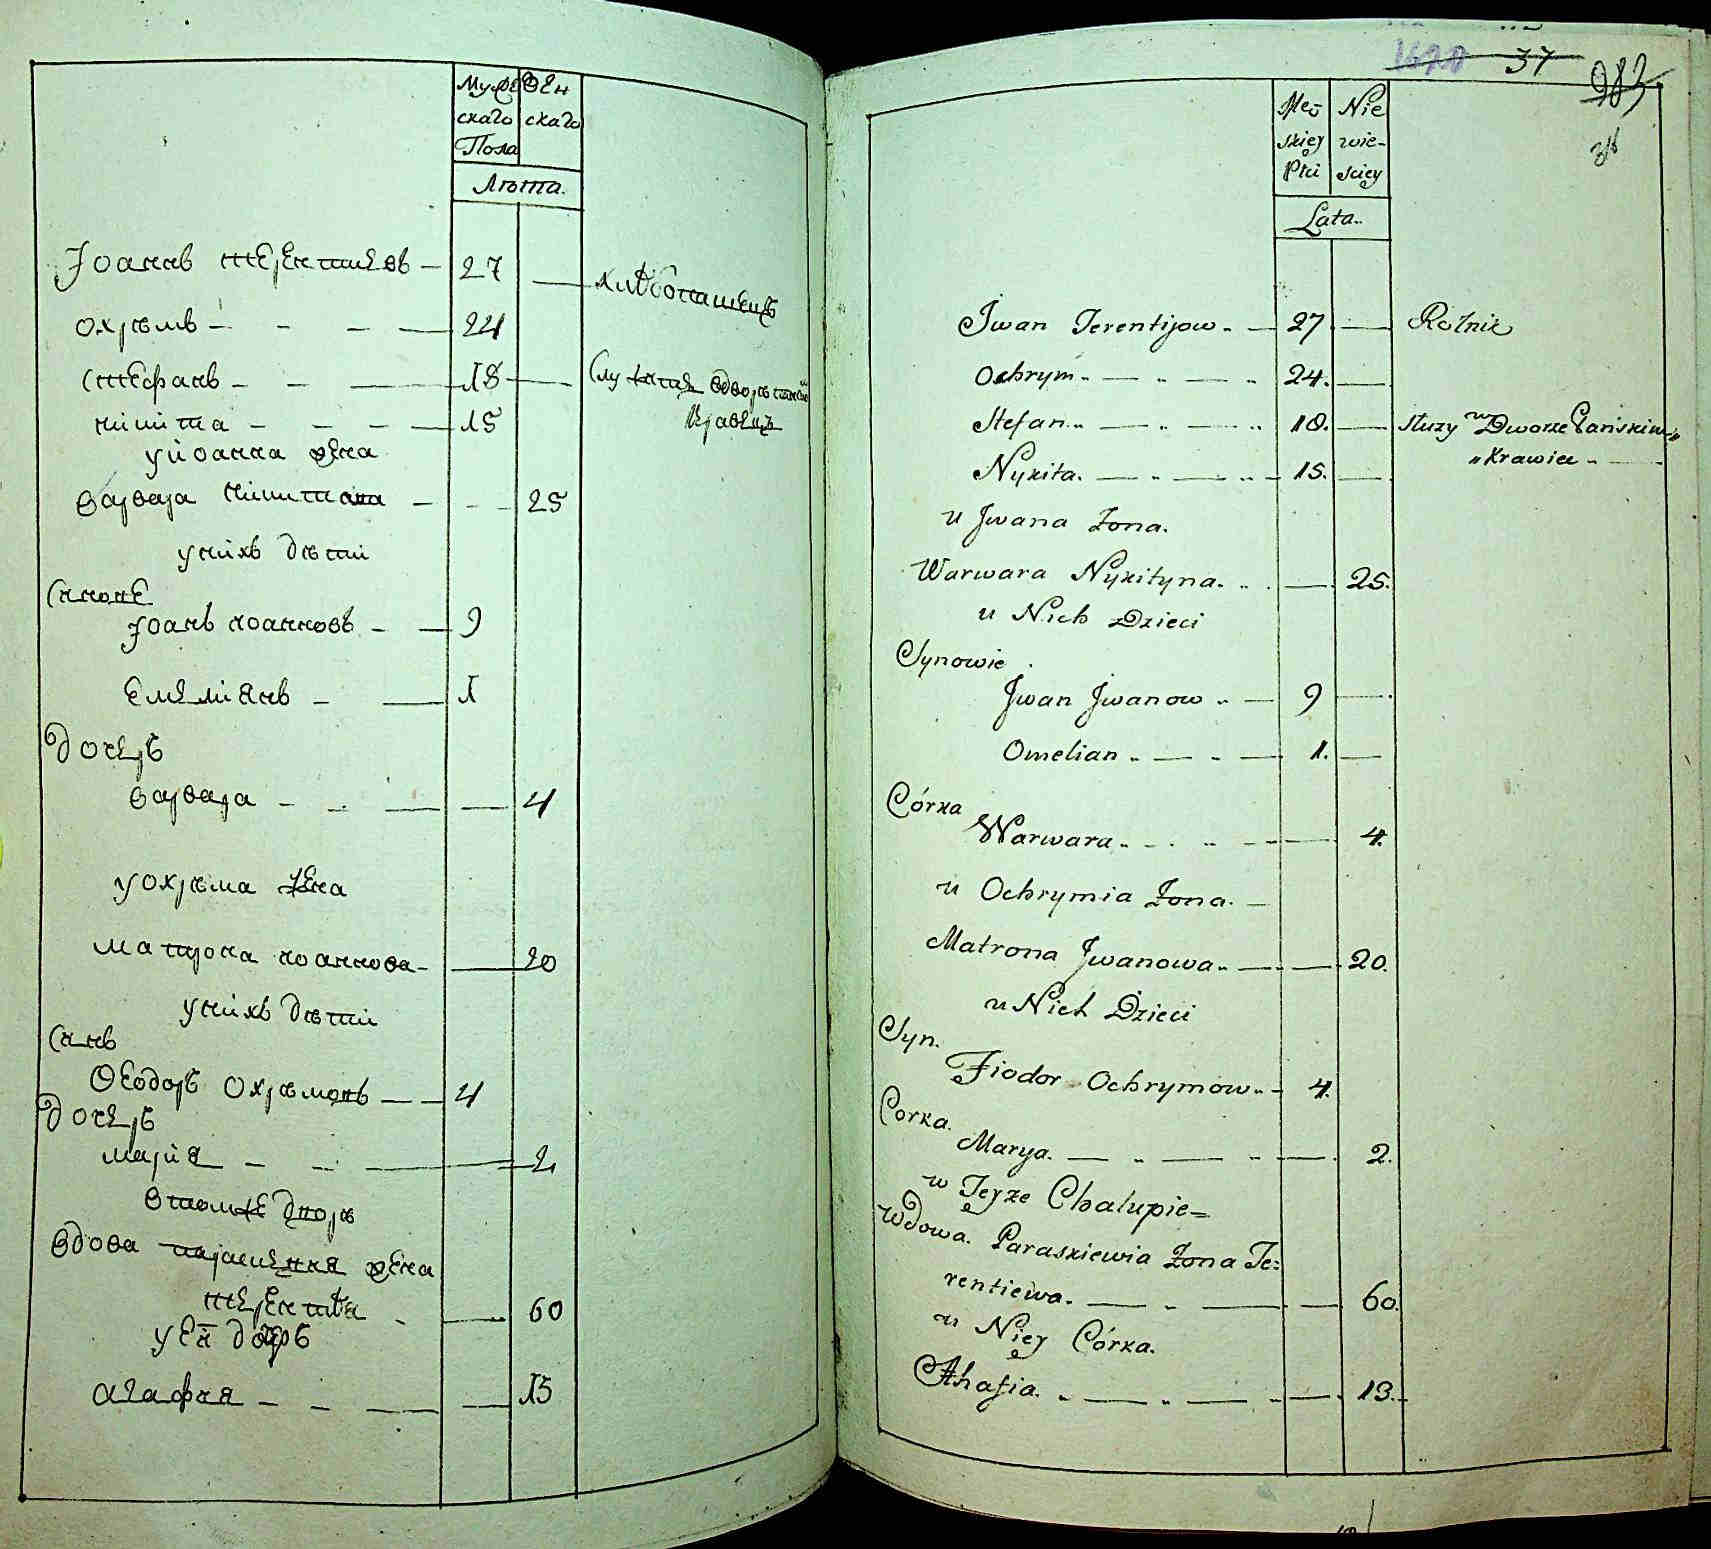 Мужескаго Женскаго
Пола
Лѣта.
Іоаннъ терентиевъ — 27 хлѣбопашецъ
охрѣмъ — 24
стефанъ — 18 служитъ вдворѣ панской
кравецъ
никита — 15
у иоанна жена
варвара никитина — 25
у нихъ дѣти
Сынове
Іоанъ иоанновъ — 9
емелиянъ — 1
дочерь
варвара — 4
у охрѣма жена
матрона иоаннова — 20
у нихъ дѣти
Сынъ
Ѳеодоръ охрѣмовъ — 4
дочерь
мария — 2
втомже дворѣ
вдова параскевия жена
терентиева — 60
у ея дочерь
агафия — 13
37
983
Męskiey Niewieściey
Płci
Lata..
Jwan Terentijow. — 27 — Rolnik
Ochrym. — 24. —
Stefan. — 18. — służy w Dworze Pańskim
Krawiec
Nykita. — 15. —
u Jwana Żona.
Warwara Nykityna. — 25.
u Nich Dzieci
Synowie
Jwan Jwanow — 9 —
Omelian — 1. —
Córka
Warwara — 4.
u Ochrymia Żona. —
Matrona Jwanowa — 20.
u Nich Dzieci
Syn.
Fiodor Ochrymow — 4.
Corka.
Marya. — 2.
w Teyże Chałupie =
Wdowa. Paraskiewia Żona Te=
rentiewa. — 60.
u Niey Córka.
Ahafia. — 13.